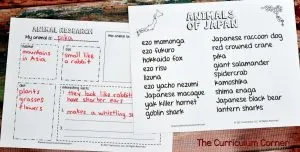 ANIMAL RESEARCH
My animal is: pika
mountains
in Asia
small like
a rabbit
eat
plants
grasses
flowers
they look like rabbits
have shorter ears
make a whistling
ANIMALS
OF JAPAN
ezo momonga
ezo fukuro
hokkaido fox
ezo risu
lizuna
ezo yacho nezumi
Japanese macaque
yak killer hornet
goblin shark
Japanese raccoon dog
red crowned crane
pika
giant salamander
spidercrab
kamoshika
shima enaga
Japanese black bear
lantern sharks
The Curriculum Corner